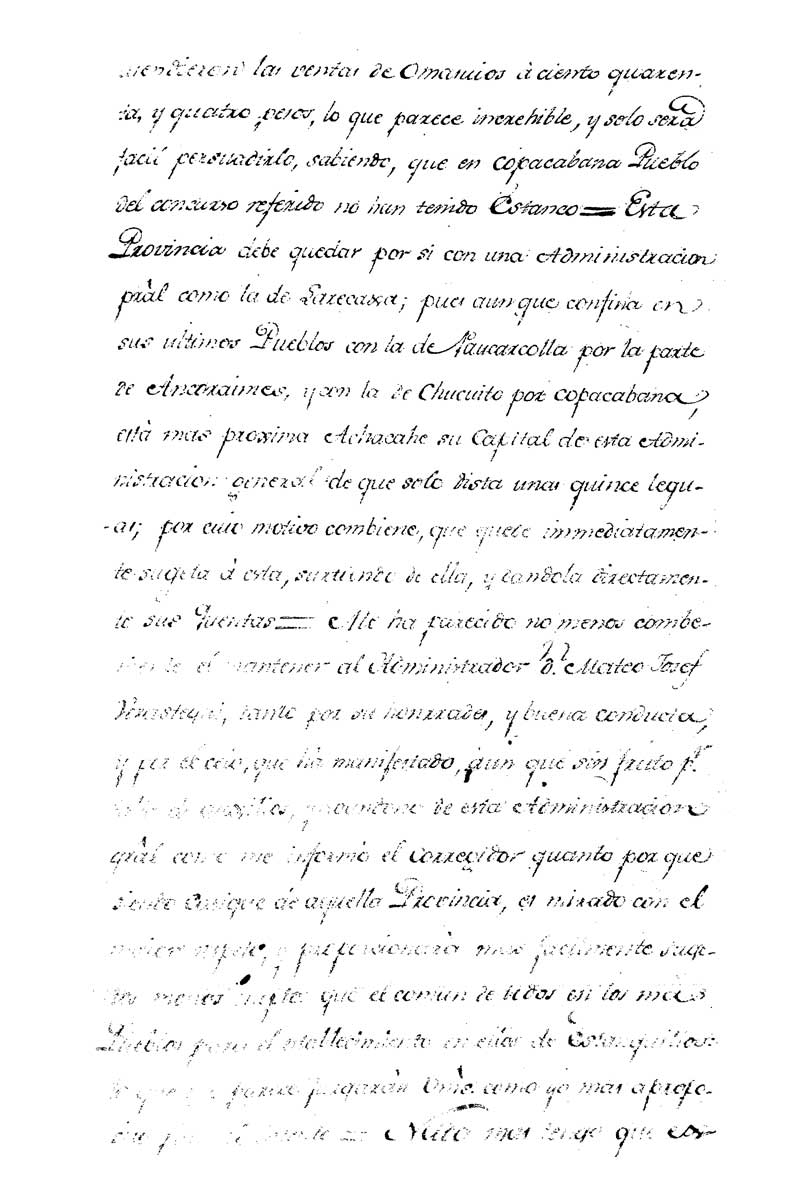 cendieron las ventas de Omasuios à ciento quaren-
ta, y quatro pesos, lo que parece increhible, y solo será
facil persuadirlo, sabiendo, que en Copacabana Pueblo
del concurso referido no han tenido Estanco = Esta
Provincia debe quedar por si con una Administracion
prãl como la de Larecaxa; pues aunque confina en
sus ultimos Pueblos con la de Paucarcolla por la parte
de Ancoraimes, y con la de Chucuito por Copacabana,
està mas proxima Achacahe su Capital de esta Admi-
nistracion general de que solo dista unas quince legu-
-as; por cuio motivo combiene, que quede immediatamen-
te sugeta à esta, surtiendo de ella, y dandola directamen-
te sus Quentas = Me ha parecido no menos combe-
niente el mantener al Administrador Dn. Mateo Josef
Verastegui, tanto por su honrrades, y buena conducta,
y por el celo, que hà manifestado, aun que sin fruto pr.
falta de auxilios, de esta Administracion
grãl como me informò el Corregidor quanto por que
siendo Casique de aquella Provincia, es mirado con el
maior respeto, y proporcionarà mas facilmente suge-
tos menos que el comun de todos en los mas
Pueblos para el establecimiento en ellos de Estanquillos
lo que juzgaràn Vms. como yo mas aproposi-
= Nada mas tengo que